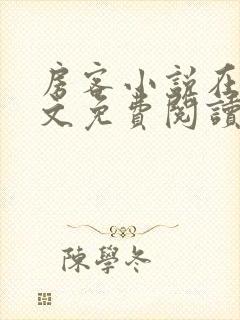 房客小说在
文免費閱讀
陳學冬